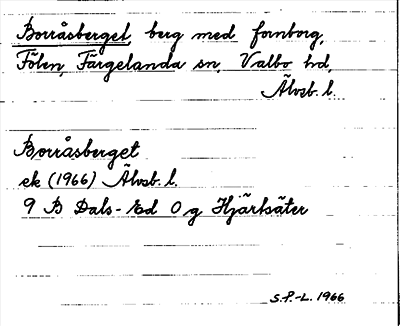 Borråsberget, berg med fornborg,
Fölen, Färgelanda sn, Valbo hd,
Älvsb. l.
Borråsberget
ek (1966) Älvsb. l.
9 B Dals-Ed O g Hjärtsäter
S.P.-L. 1966